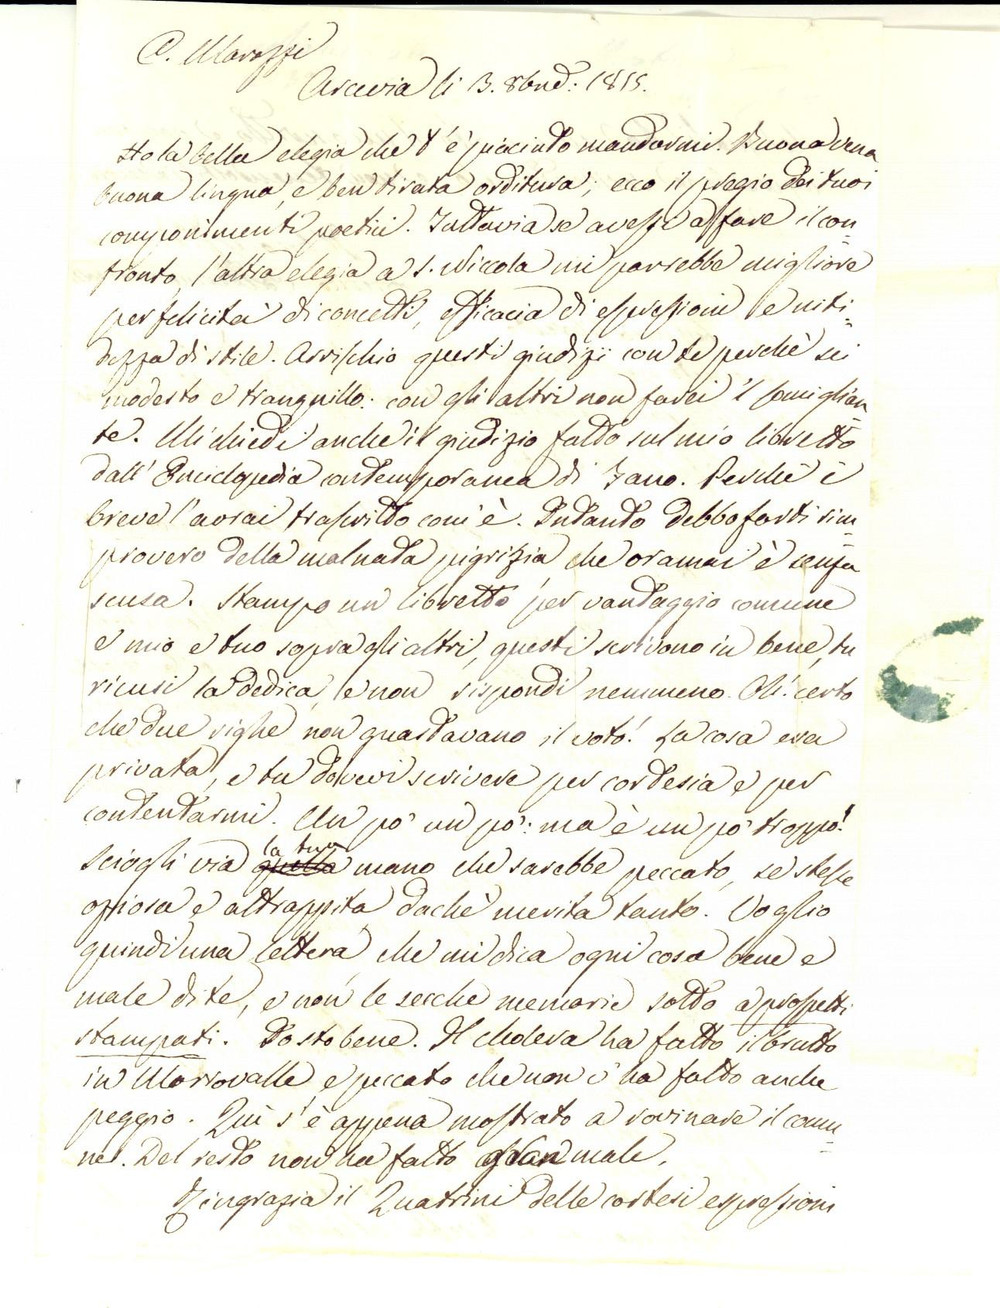 C. Marozzi
Arcevia li 13. 8bre: 1855.
Ho la bella elegia che t'è piaciuto mandarmi. Buona vena
buona lingua, e ben tirata orditura; ecco il pregio dei tuoi
componimenti poetici. Tuttavia se avessi a fare il con=
fronto, l'altra elegia a S. Niccola mi parrebbe migliore
per felicità di concetti, efficacia di espressioni e niti=
dezza di stile. Arrischio questi giudizi con te perchè sei
modesto e tranquillo: con gli altri non farei il somiglian=
te. Mi chiedi anche il giudizio fatto sul mio libretto
dall'Enciclopedia contemporanea di Fano. Perchè è
breve l'avrai trascritto com'è. Intanto debbo farti rim=
provero della malnata pigrizia che oramai è senza
scusa. Stampo un libretto per vantaggio comune
e mio e tuo sopra gli altri, questi scrivono in bene, tu
ricusi la dedica, e non rispondi nemmeno. Oh! certo
che due righe non guastavano il voto! La cosa era
privata, e tu dovevi scrivere per cortesia e per
contentarmi. Un po' un po': ma è un po' troppo!
Sciogli via la tua mano che sarebbe peccato, se stesse
oziosa e attrappita dachè merita tanto. Voglio
quindi una lettera che mi dica ogni cosa bene e
male di te, e non le secche memorie sotto a prospetti
stampati. Io sto bene. Il cholera ha fatto il brutto
in Morrovalle e peccato che non v'ha fatto anche
peggio. Qui s'è appena mostrato a rovinare il comu=
ne. Del resto non ha fatto gran male.
Ringrazia il Quatrini delle cortesi espressioni